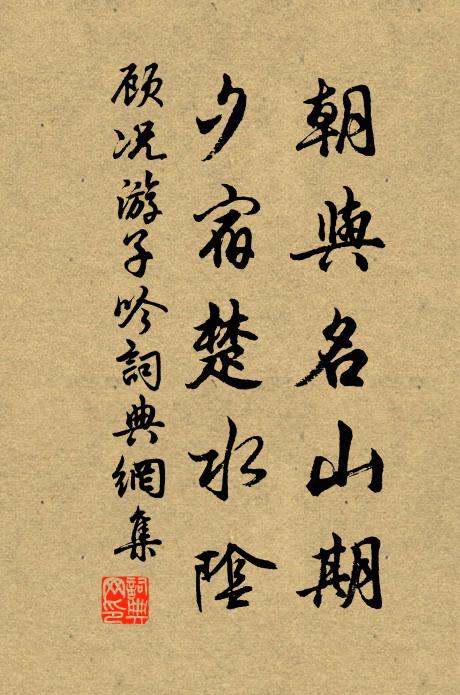 朝與名山期
夕宿楚水陰
顾况游子吟詞典網集
詞典
网印